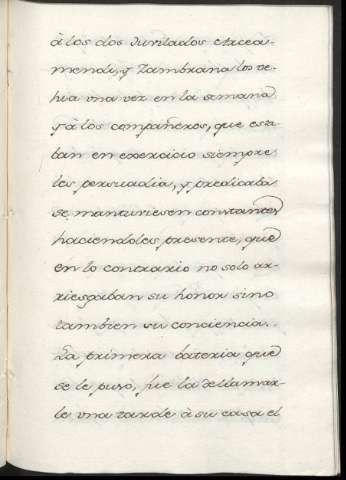 à los dos Jurilados Arcea-
mendi, y Zambrana los ve-
hia una vez en la semana
y à los compañeros, que esta-
ban en exercicio siempre
les persuadia, y predicaba
se mantuviesen constantes,
haciendoles presente, que
en lo contrario no solo ar-
riesgaban su honor sino
tambien su conciencia.
La primera bateria que
se le puso, fue la de llamar-
le una tarde à su casa el